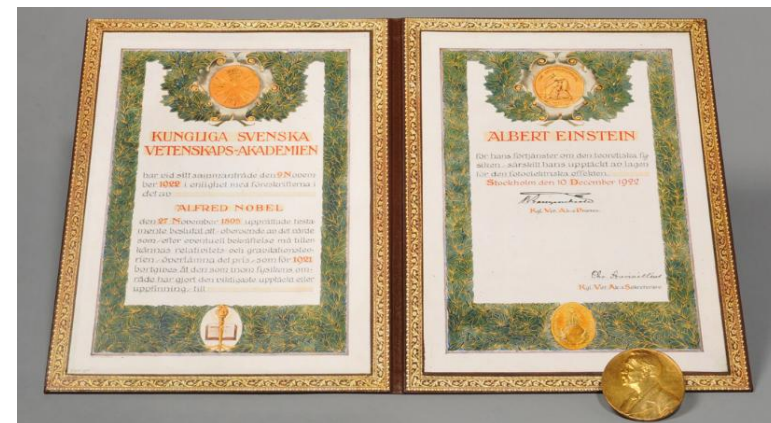 KUNGLIGA SVENSKA
VETENSKAPS-AKADEMIEN
har vid sitt sammanträde den 9 Novem
ber 1922 i enlighet med föreskrifterna i
det av
ALFRED NOBEL
den 27 November 1895 upprättade testa
mente beslutat att oberoende av det värde
som efter eventuell bekräftelse må tiller
kännas relativitets och gravitationsteo
rien överlämna det pris som för 1921
bortgives åt den som inom fysikens om
råde har gjort den viktigaste upptäckt eller
uppfinning till
ALBERT EINSTEIN
för hans förtjänster om den teoretiska fy
siken särskilt hans upptäckt av lagen
för den fotoelektriska effekten
Stockholm den 10 December 1922
Kgl. Vet. Ak:s Præses
Kgl. Vet. Ak:s Sekreterare